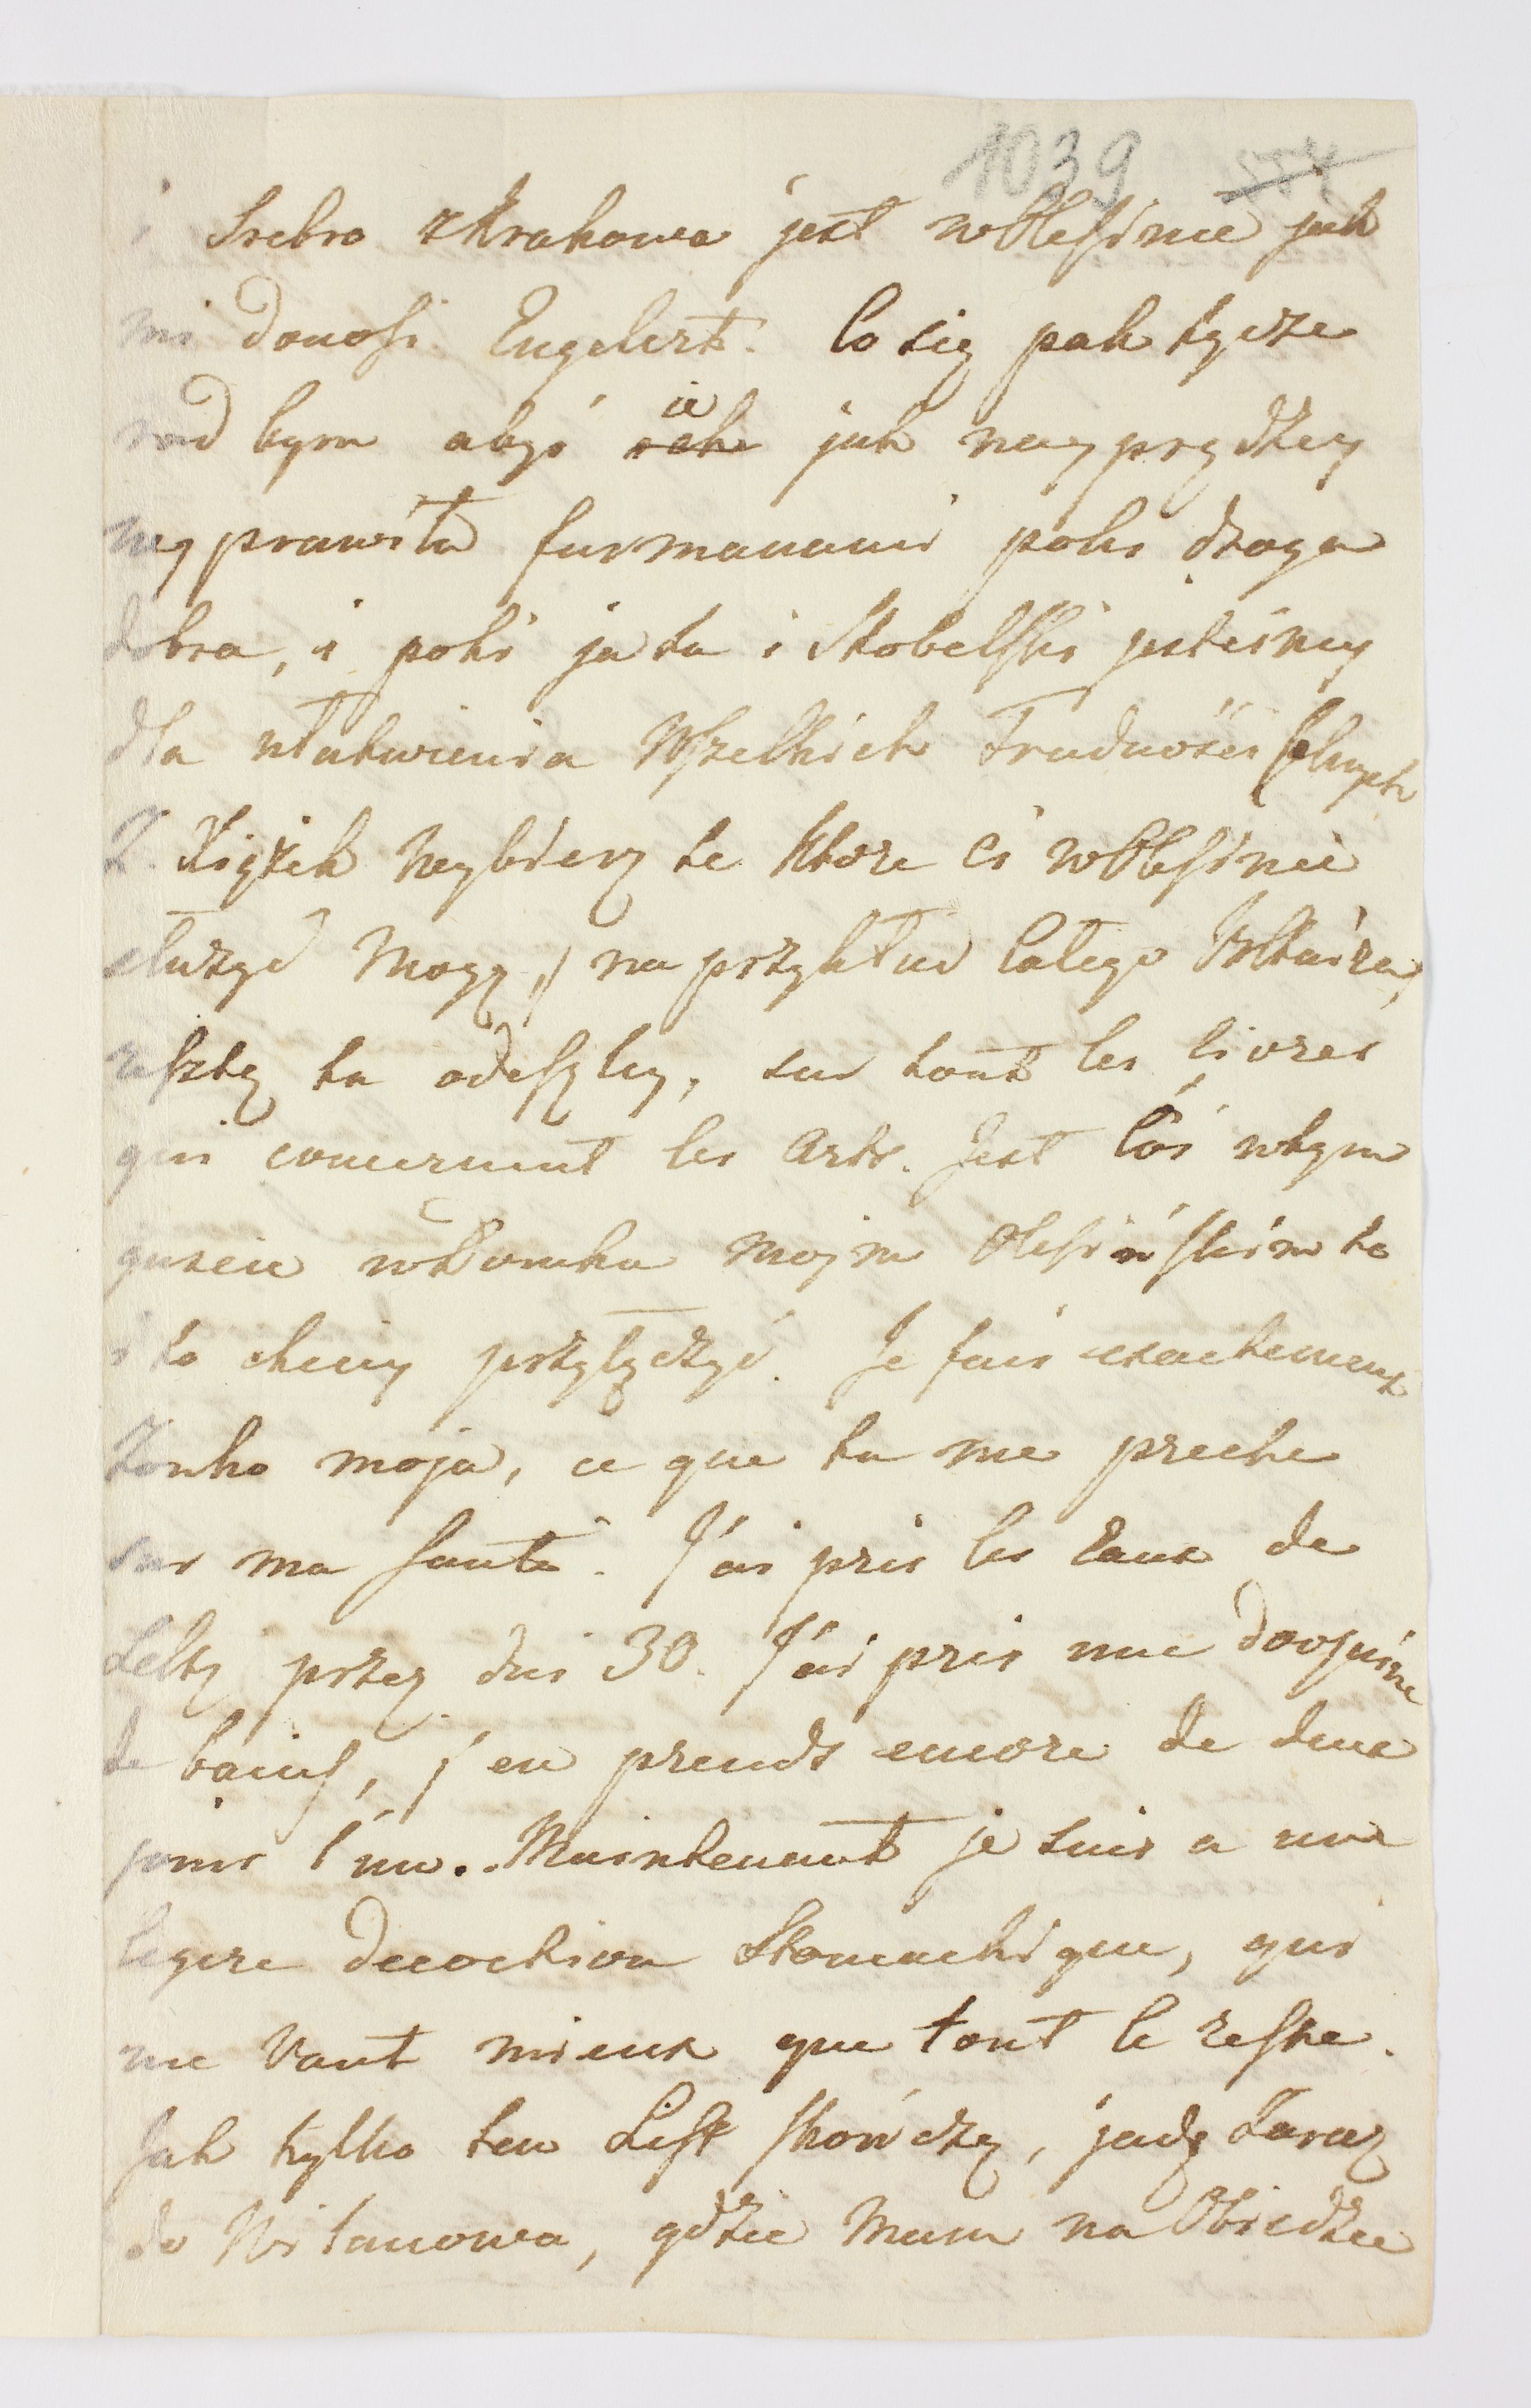 1039
Srebro z Krakowa jest w Olesinie jak
mi donosi Engelert. Co się pak tycze
rad bym abyś ie jak nayprędzey
wyprawiła furmanami poki droga
dobra, i poki ja tu i Skobelski jesteśmy
dla ułatwienia Wszelkich Trudności Celnych
Z Xiążek Wybierz te ktore Ci w Olesinie
służyć Mogą, na przykład Całego Woltaira,
resztę tu odeszley, sur tout les livres
qui concernent les Arts. Jest Coś w tym
guscie w Domku Moim Olesińskim te
i to chciey przyłączyć. Je fais exactement
Zonko moja, ce que tu me preche
sur ma santé. J'ai pris les Eaux de
Selty przez dni 30. J'ai pris une Douzaine
de bains, j'en prends encore de deux
jours l'un. Maintenant je suis a une
legere decoction Stomachique, qui
me Vaut mieux que tout le reste.
Jak tylko ten List skończę, jadę Zaraz
do Wilanowa, gdzie Mam na Obiedzie